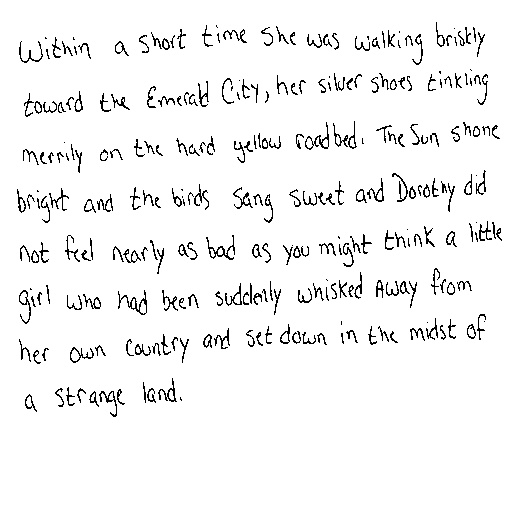 Within a short time she was walking briskly
toward the Emerald City, her silver shoes tinkling
merrily on the hard yellow roadbed. The Sun shone
bright and the birds sang sweet and Dorothy did
not feel nearly as bad as you might think a little
girl who had been suddenly whisked away from
her own country and set down in the midst of
a strange land.